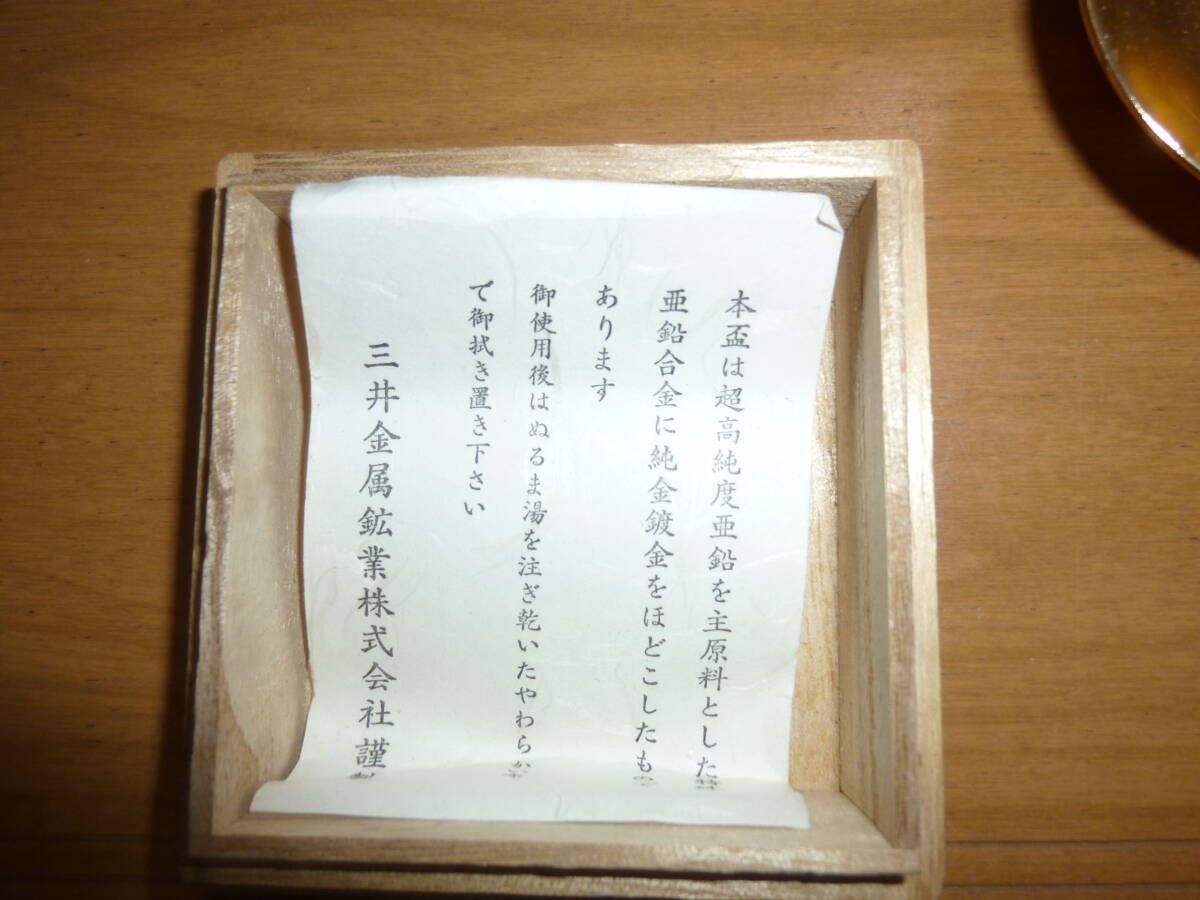 本盃は超高純度亜鉛を主原料とした特
亜鉛合金に純金鍍金をほどこしたもの
あります
御使用後はぬるま湯を注ぎ乾いたやわらか
で御拭き置き下さい
三井金属鉱業株式会社謹製